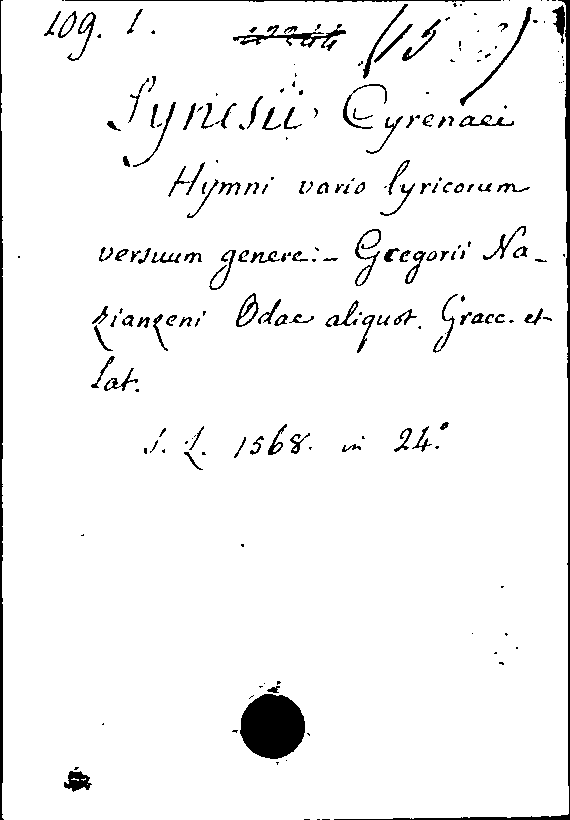 109. 1. 12244 (15
Synesii Cyrenaei
Hymni vario lyricorum
versuum genere :- Gregorii Na-
zianzeni Odae aliquot. Graec. et
Lat.
S. L. 1568. in 24.º